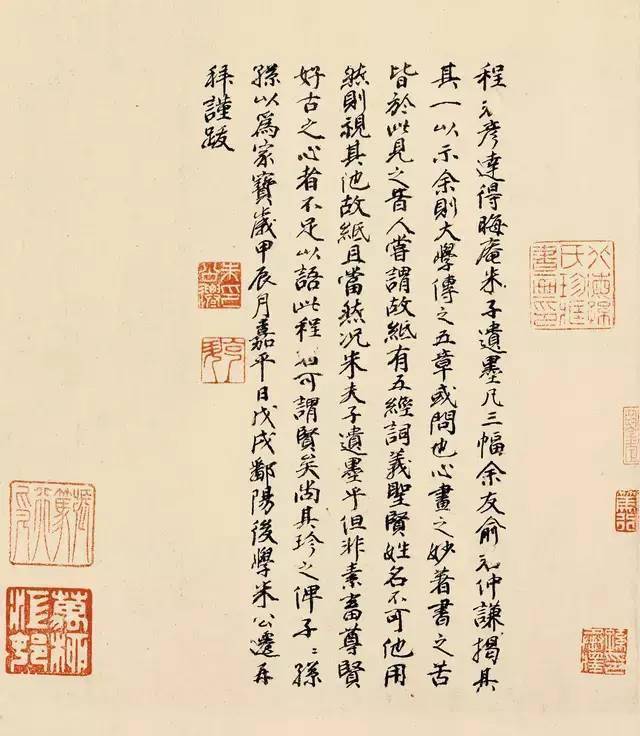 程兄彦達得晦庵朱子遺墨凡三幅余友俞兄仲謙揭其
其一以示余則大學傳之五章或問也心畫之妙著書之苦
皆於此見之昔人嘗謂故紙有五經詞義聖賢姓名不可他用
然則視其他故紙且當然况朱夫子遺墨乎但非素畜尊賢
好古之心者不足以語此程兄可謂賢矣尚其珍之俾子〻孫
孫以爲家寶歲甲辰月嘉平日戊戌鄱陽後學朱公遷再
拜謹跋